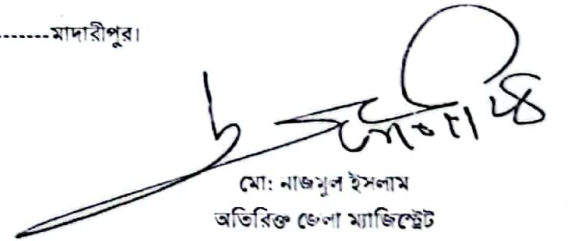 -------মাদারীপুর।
মো: নাজমুল ইসলাম
অতিরিক্ত জেলা ম্যাজিস্ট্রেট